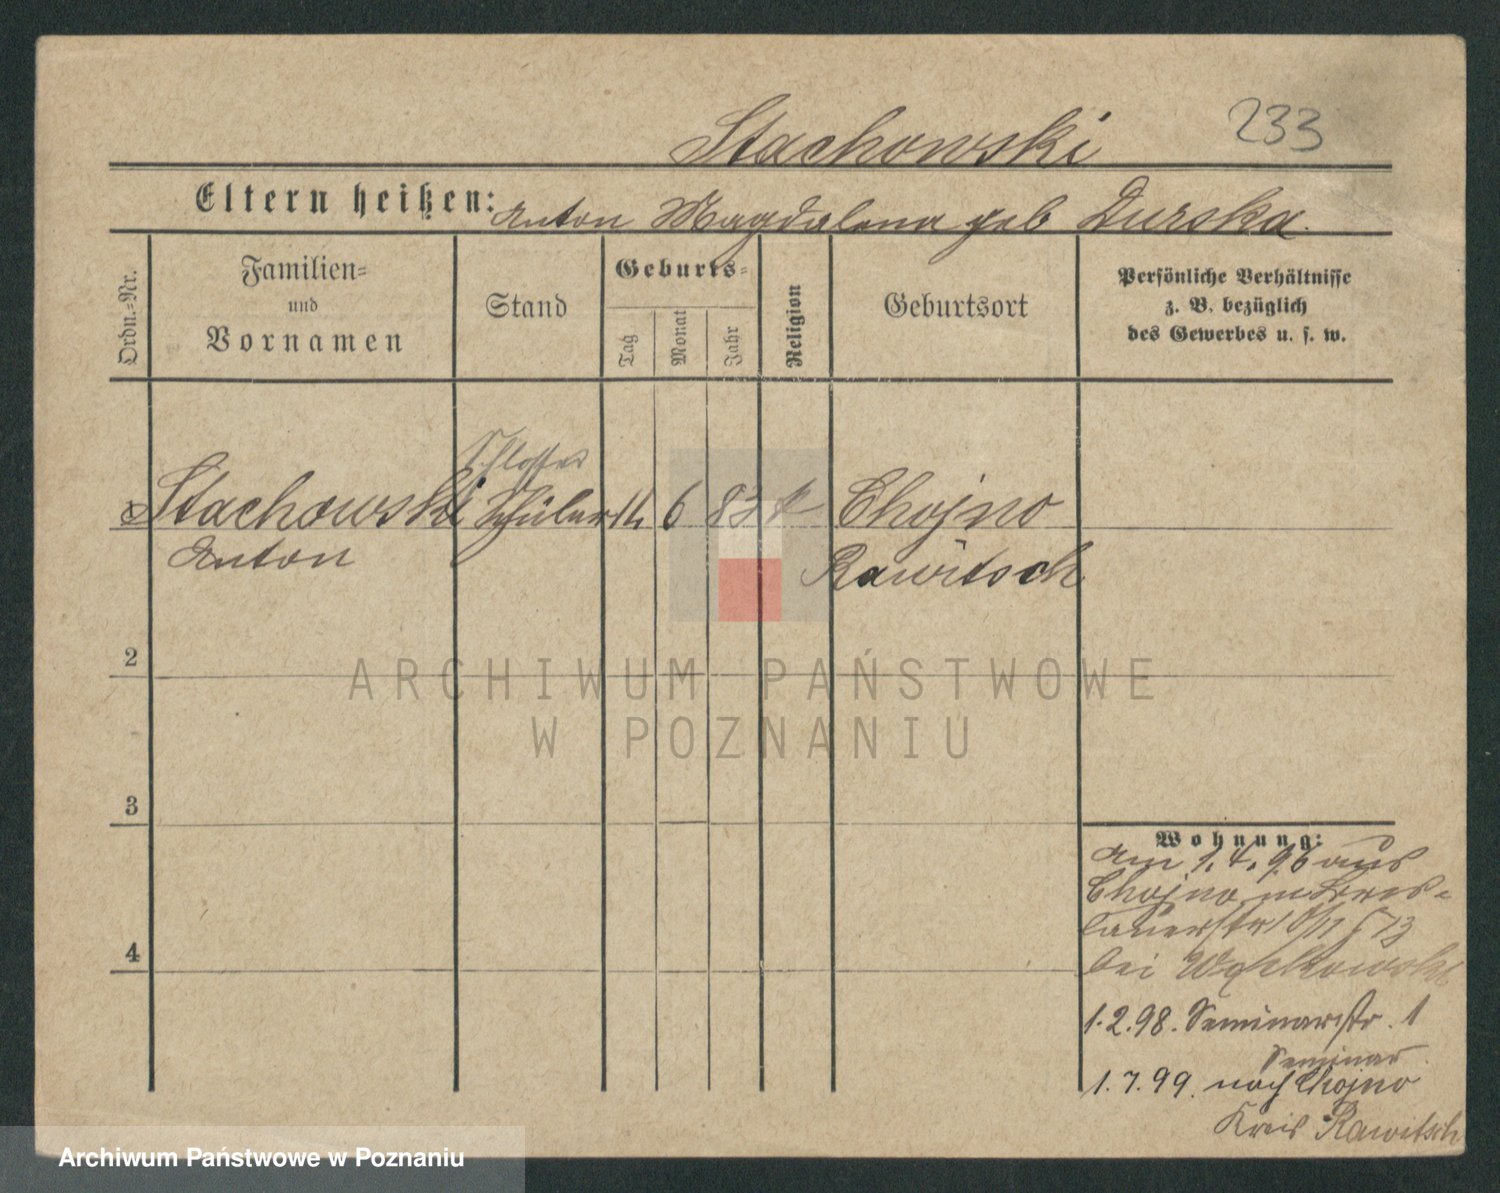 Stachowski 233
Eltern heißen: Anton Magdalena geb Durska.
Ordn.=Nr.
Familien=
und
Vornamen
Stand
Geburts=
Tag
Monat
Jahr
Religion
Geburtsort
Persönliche Verhältnisse
z. B. bezüglich
des Gewerbes u. s. w.
Schlosser
1 Stachowski Schüler 14 6 83 k Chojno
Anton Rawitsch
2
3
4
Wohnung:
Am 1.4.96 aus
Chojno n. Bres=
lauerstr
bei
1.2.98. Seminarstr. 1
Seminar
1.7.99. nach Chojno
Kreis Rawitsch
ARCHIWUM PAŃSTWOWE
W POZNANIU
Archiwum Państwowe w Poznaniu